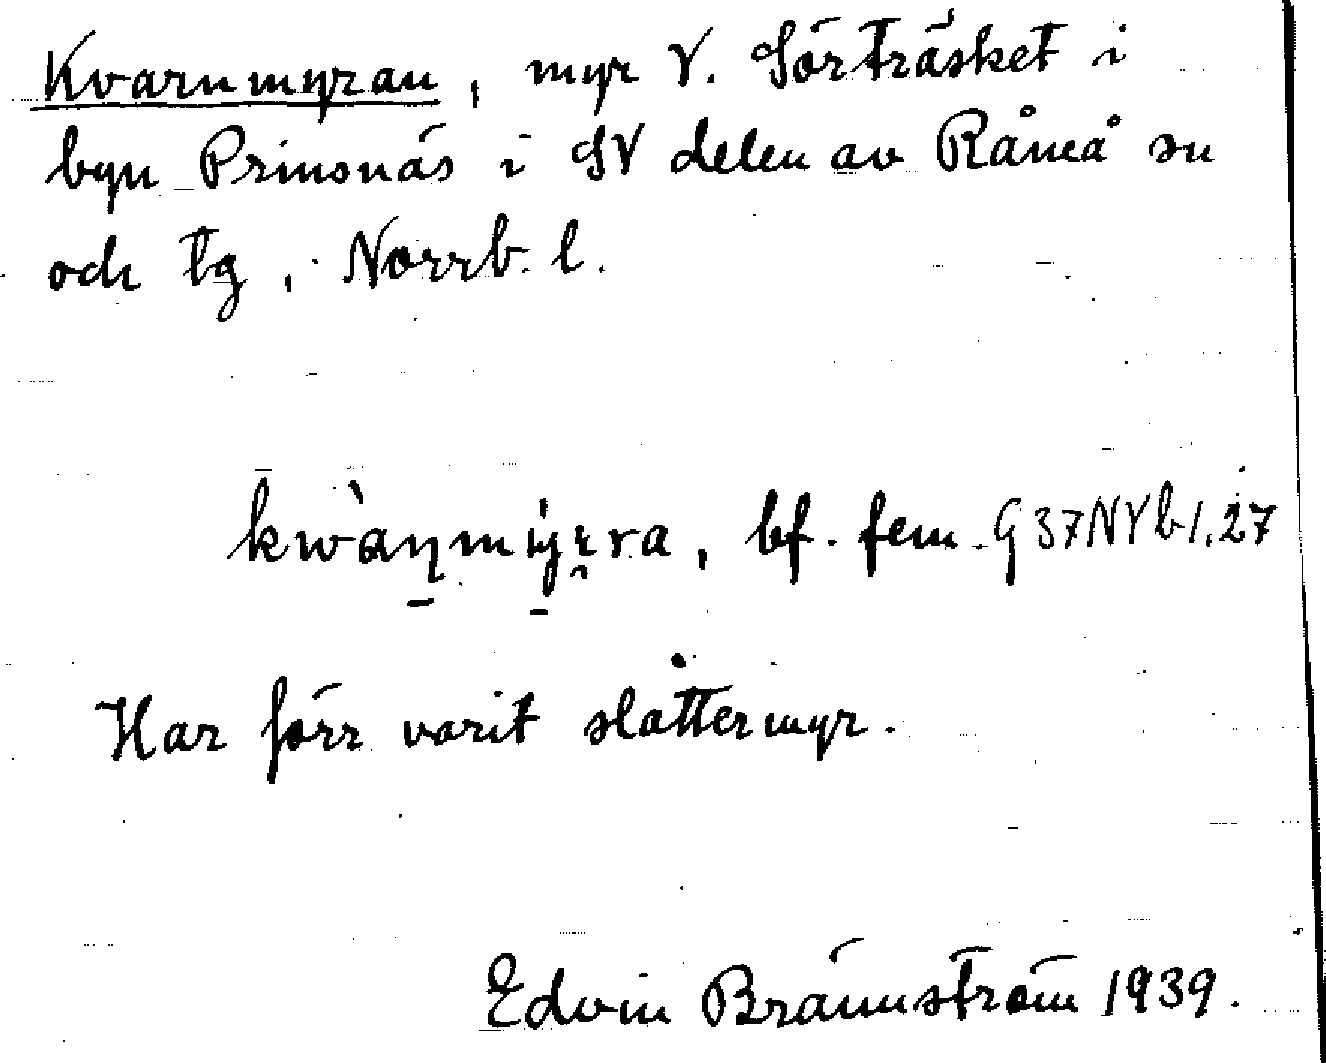 Kvarnmyran, myr V. Sörträsket i
byn Prinsnäs i SV delen av Råneå sn
och tg, Norrb. l.
bf. fem. G37NVb1,27
Har förr varit slåttermyr.
Edvin Brännström 1939.